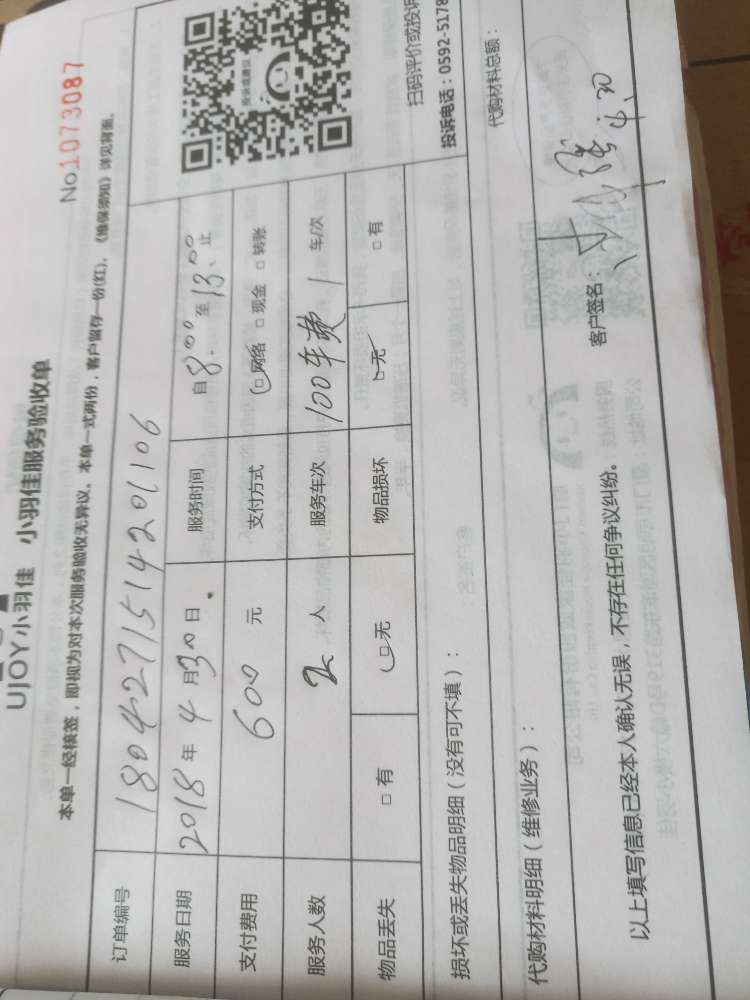 UJOY小羽佳 小羽佳服务验收单
No.1073087
本单一经核签，即视为对本次服务验收无异议。本单一式两份，客户留存一份(红)，《维保须知》详见背面。
订单编号 180427151420 1106
服务日期 2018年4月30日. 服务时间 自8:00至13:00止
支付费用 600元 支付方式 □网络 □现金 □转账
服务人数 2人 服务车次 100车费1车/次
物品丢失 □有 □无 物品损坏 □无 □有
投诉或建议
扫码评价或投诉
投诉电话：0592-5178
损坏或丢失物品明细（没有可不填）：
代购材料明细（维修业务）： 代购材料总额：
以上填写信息已经本人确认无误，不存在任何争议纠纷。 客户签名：